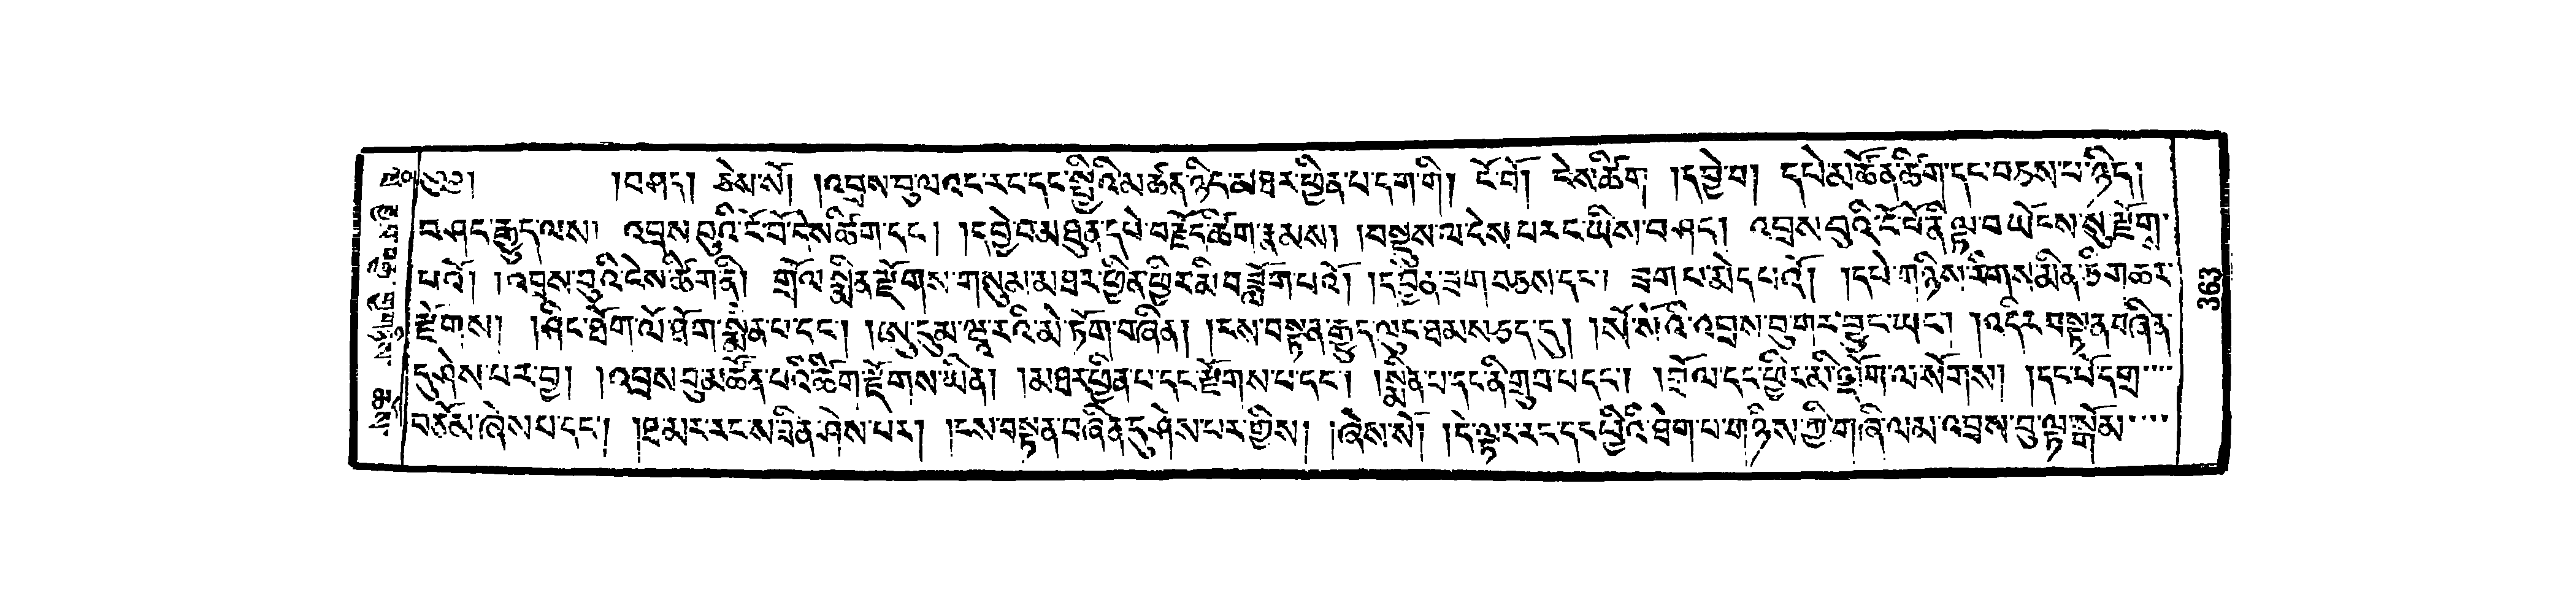 ༄༅། །བཤད། ཅེས་སོ། །འབྲས་བུ་ལའང་རང་དང་སྤྱིའི་མཚན་ཉིད་མཐར་ཕྱིན་པ་དག་གི། ངོ་བོ། ངེས་ཚིག །དབྱེ་བ། དཔེ་མཚོན་ཚིག་དང་བཅས་པ་ཉིད།
བཤད་རྒྱུད་ལས། འབྲས་བུའི་ངོ་བོ་ངེས་ཚིག་དང། །དབྱེ་བ་མཐུན་དཔེ་བརྗོད་ཚིག་རྣམས། །བསྡུས་ལ་ངེས་པར་ང་ཡིས་བཤད། འབྲས་བུའི་ངོ་བོ་ནི་ལྟ་བ་ཡོངས་སུ་རྫོགས་
པའོ། །འབྲས་བུའི་ངེས་ཚིག་ནི། གྲོལ་སྨིན་རྫོགས་གསུམ་མཐར་ཕྱིན་ཕྱིར་མི་བཟློག་པའོ། །དབྱེ་ན་ཟག་བཅས་དང་། ཟག་པ་མེད་པའོ། །དཔེ་གཉིས་རིགས་མིན་ཅིག་ཆར་
རྫོགས། །ཤིང་ཐོག་ལོ་ཐོག་སྨིན་པ་དང་། །ཨུ་དུམ་ཝཱ་རའི་མེ་ཏོག་བཞིན། །ངས་བསྟན་རྒྱུད་ལུང་ཐམས་ཅད་དུ། །སོ་སོའི་འབྲས་བུ་གང་བྱུང་ཡང་། །འདིར་བསྟན་བཞིན་
དུ་ཤེས་པར་བྱ། །འབྲས་བུ་མཚོན་པའི་ཚིག་རྫོགས་ཡིན། །མཐར་ཕྱིན་པ་དང་རྫོགས་པ་དང་། །སྨིན་པ་དང་ནི་གྲུབ་པ་དང་། །གྲོལ་དང་ཕྱིར་མི་ལྡོག་ལ་སོགས། །དང་པོ་དགྲ་
བཅོམ་ཞེས་པ་དང་། །ཐ་མར་རངས་ཟིན་ཤེས་པར། །ངས་བསྟན་བཞིན་དུ་ཤེས་པར་གྱིས། །ཞེས་སོ། །དེ་ལྟར་རང་དང་སྤྱིའི་ཐེག་པ་གཉིས་ཀྱི་གཞི་ལམ་འབྲས་བུ་ལྟ་སྒོམ་